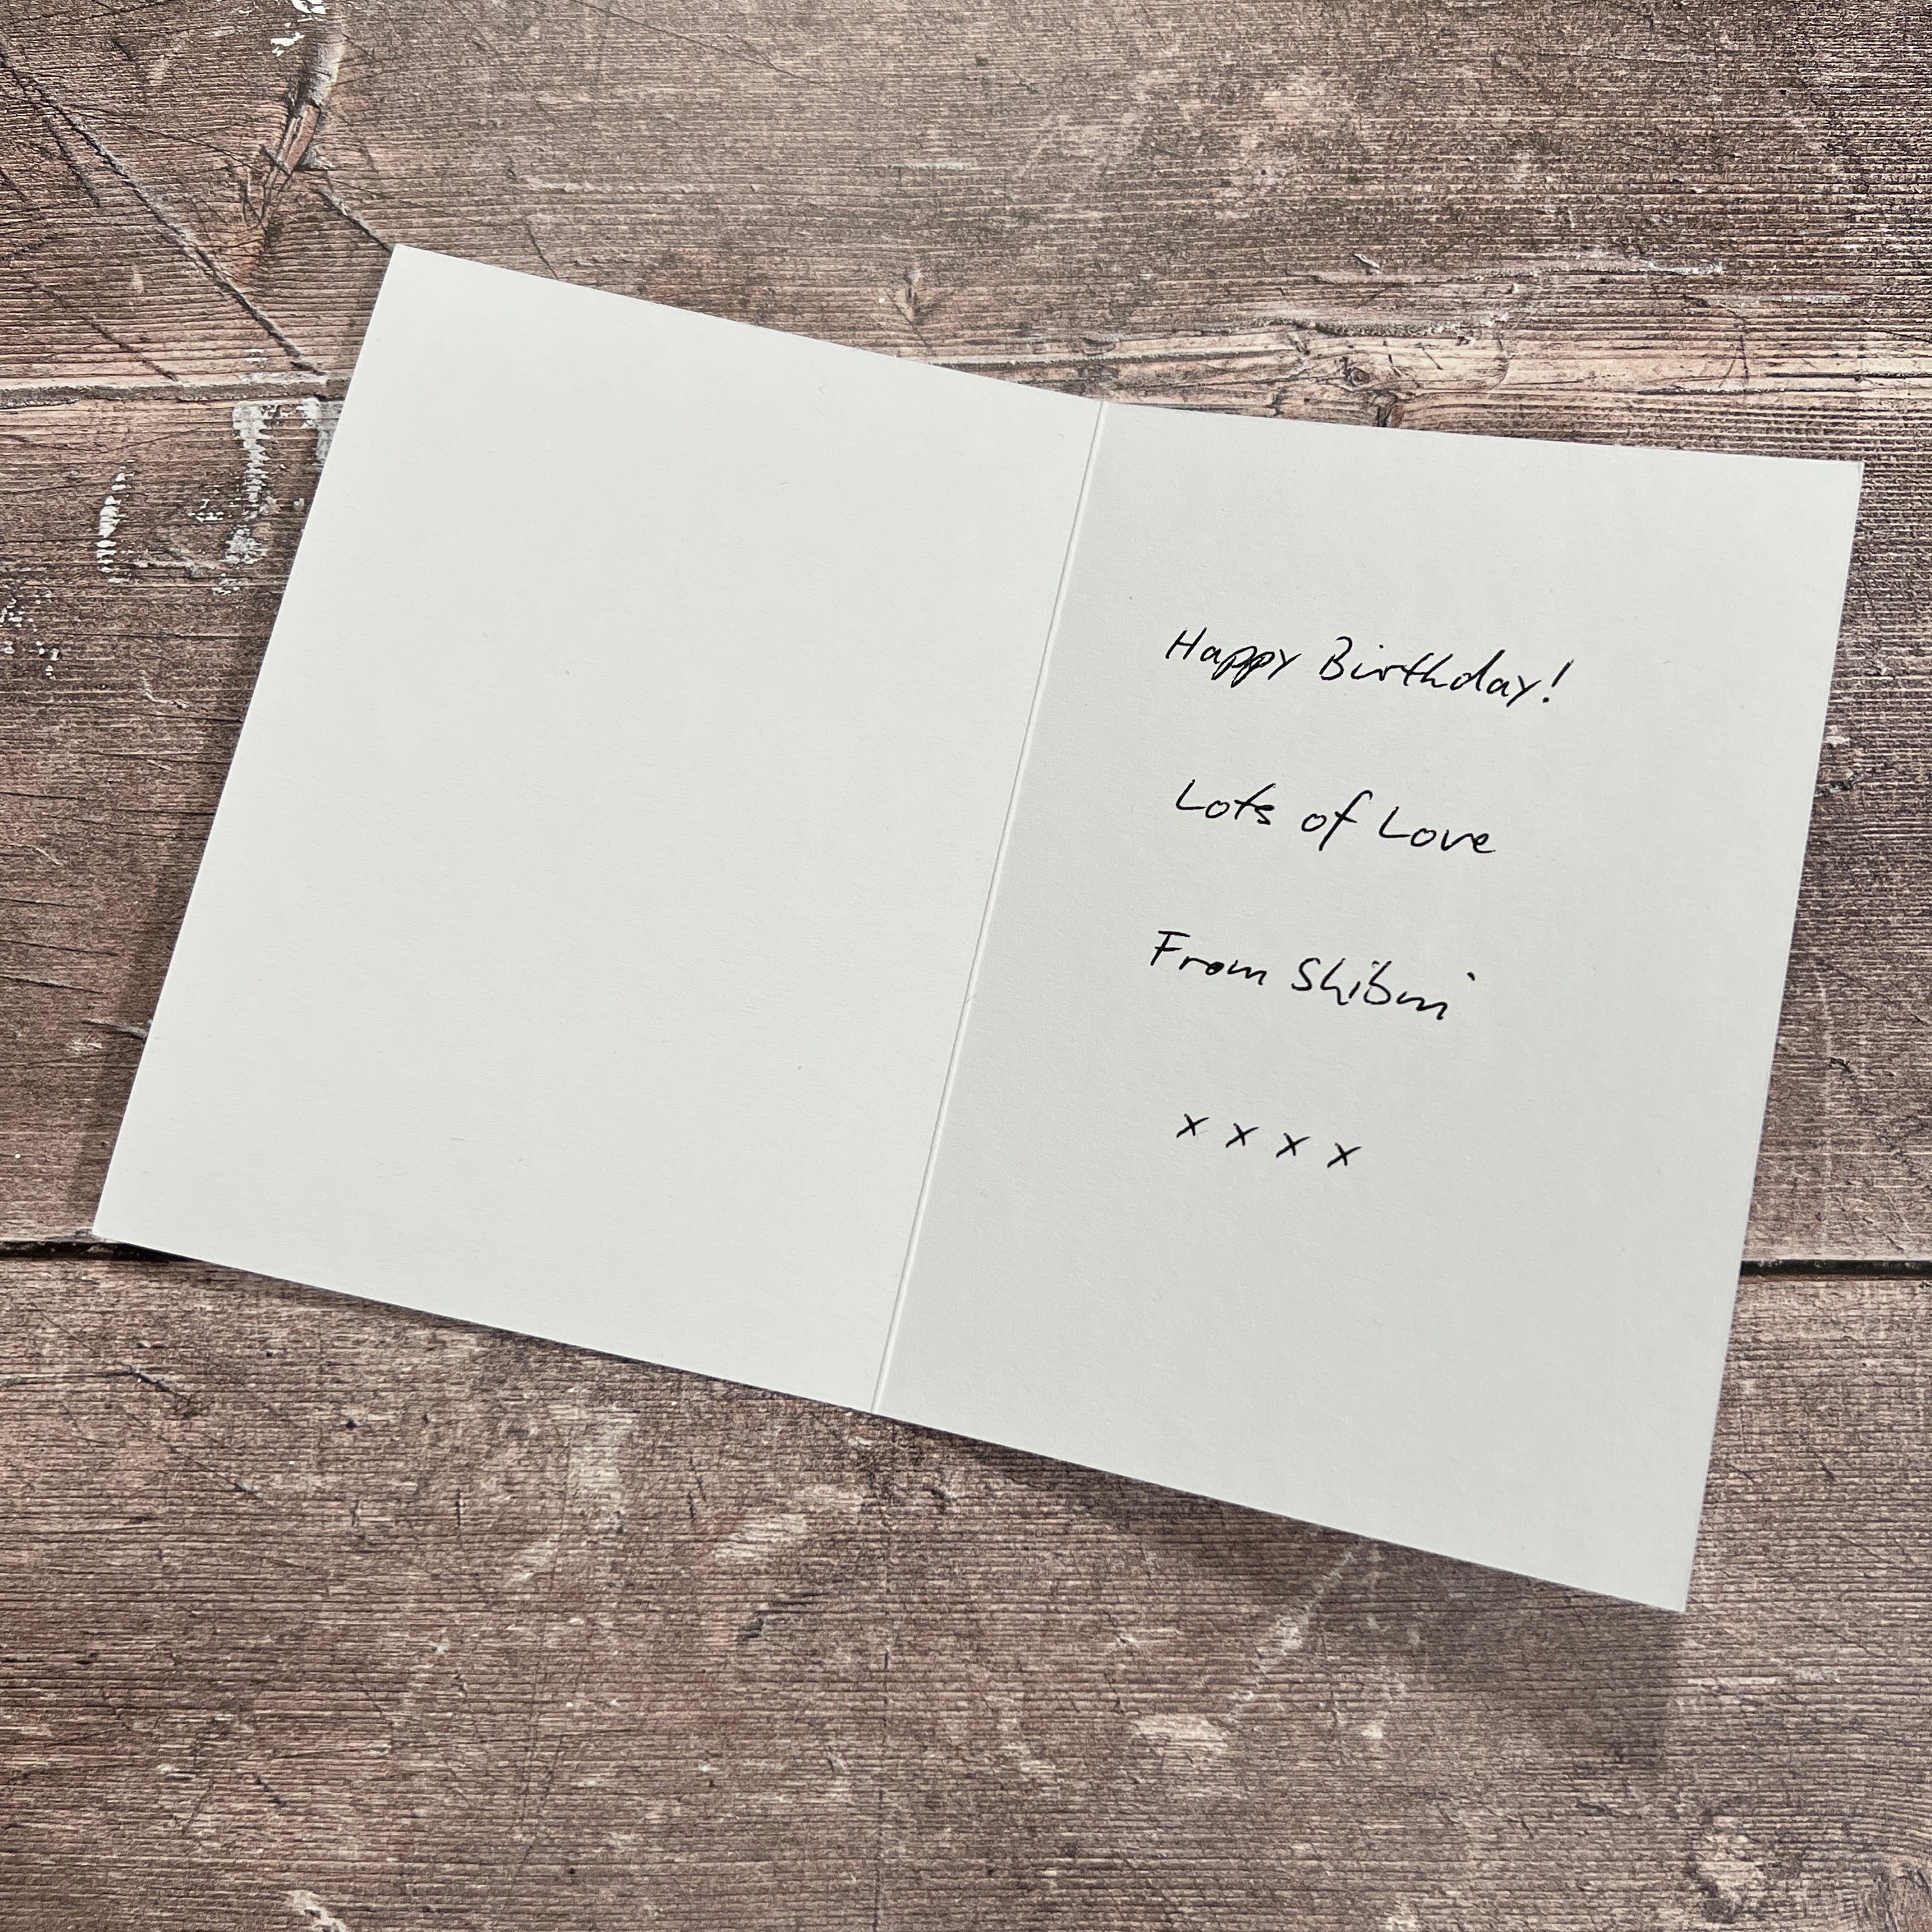 Happy Birthday!
Lots of Love
From Shibui
x x x x